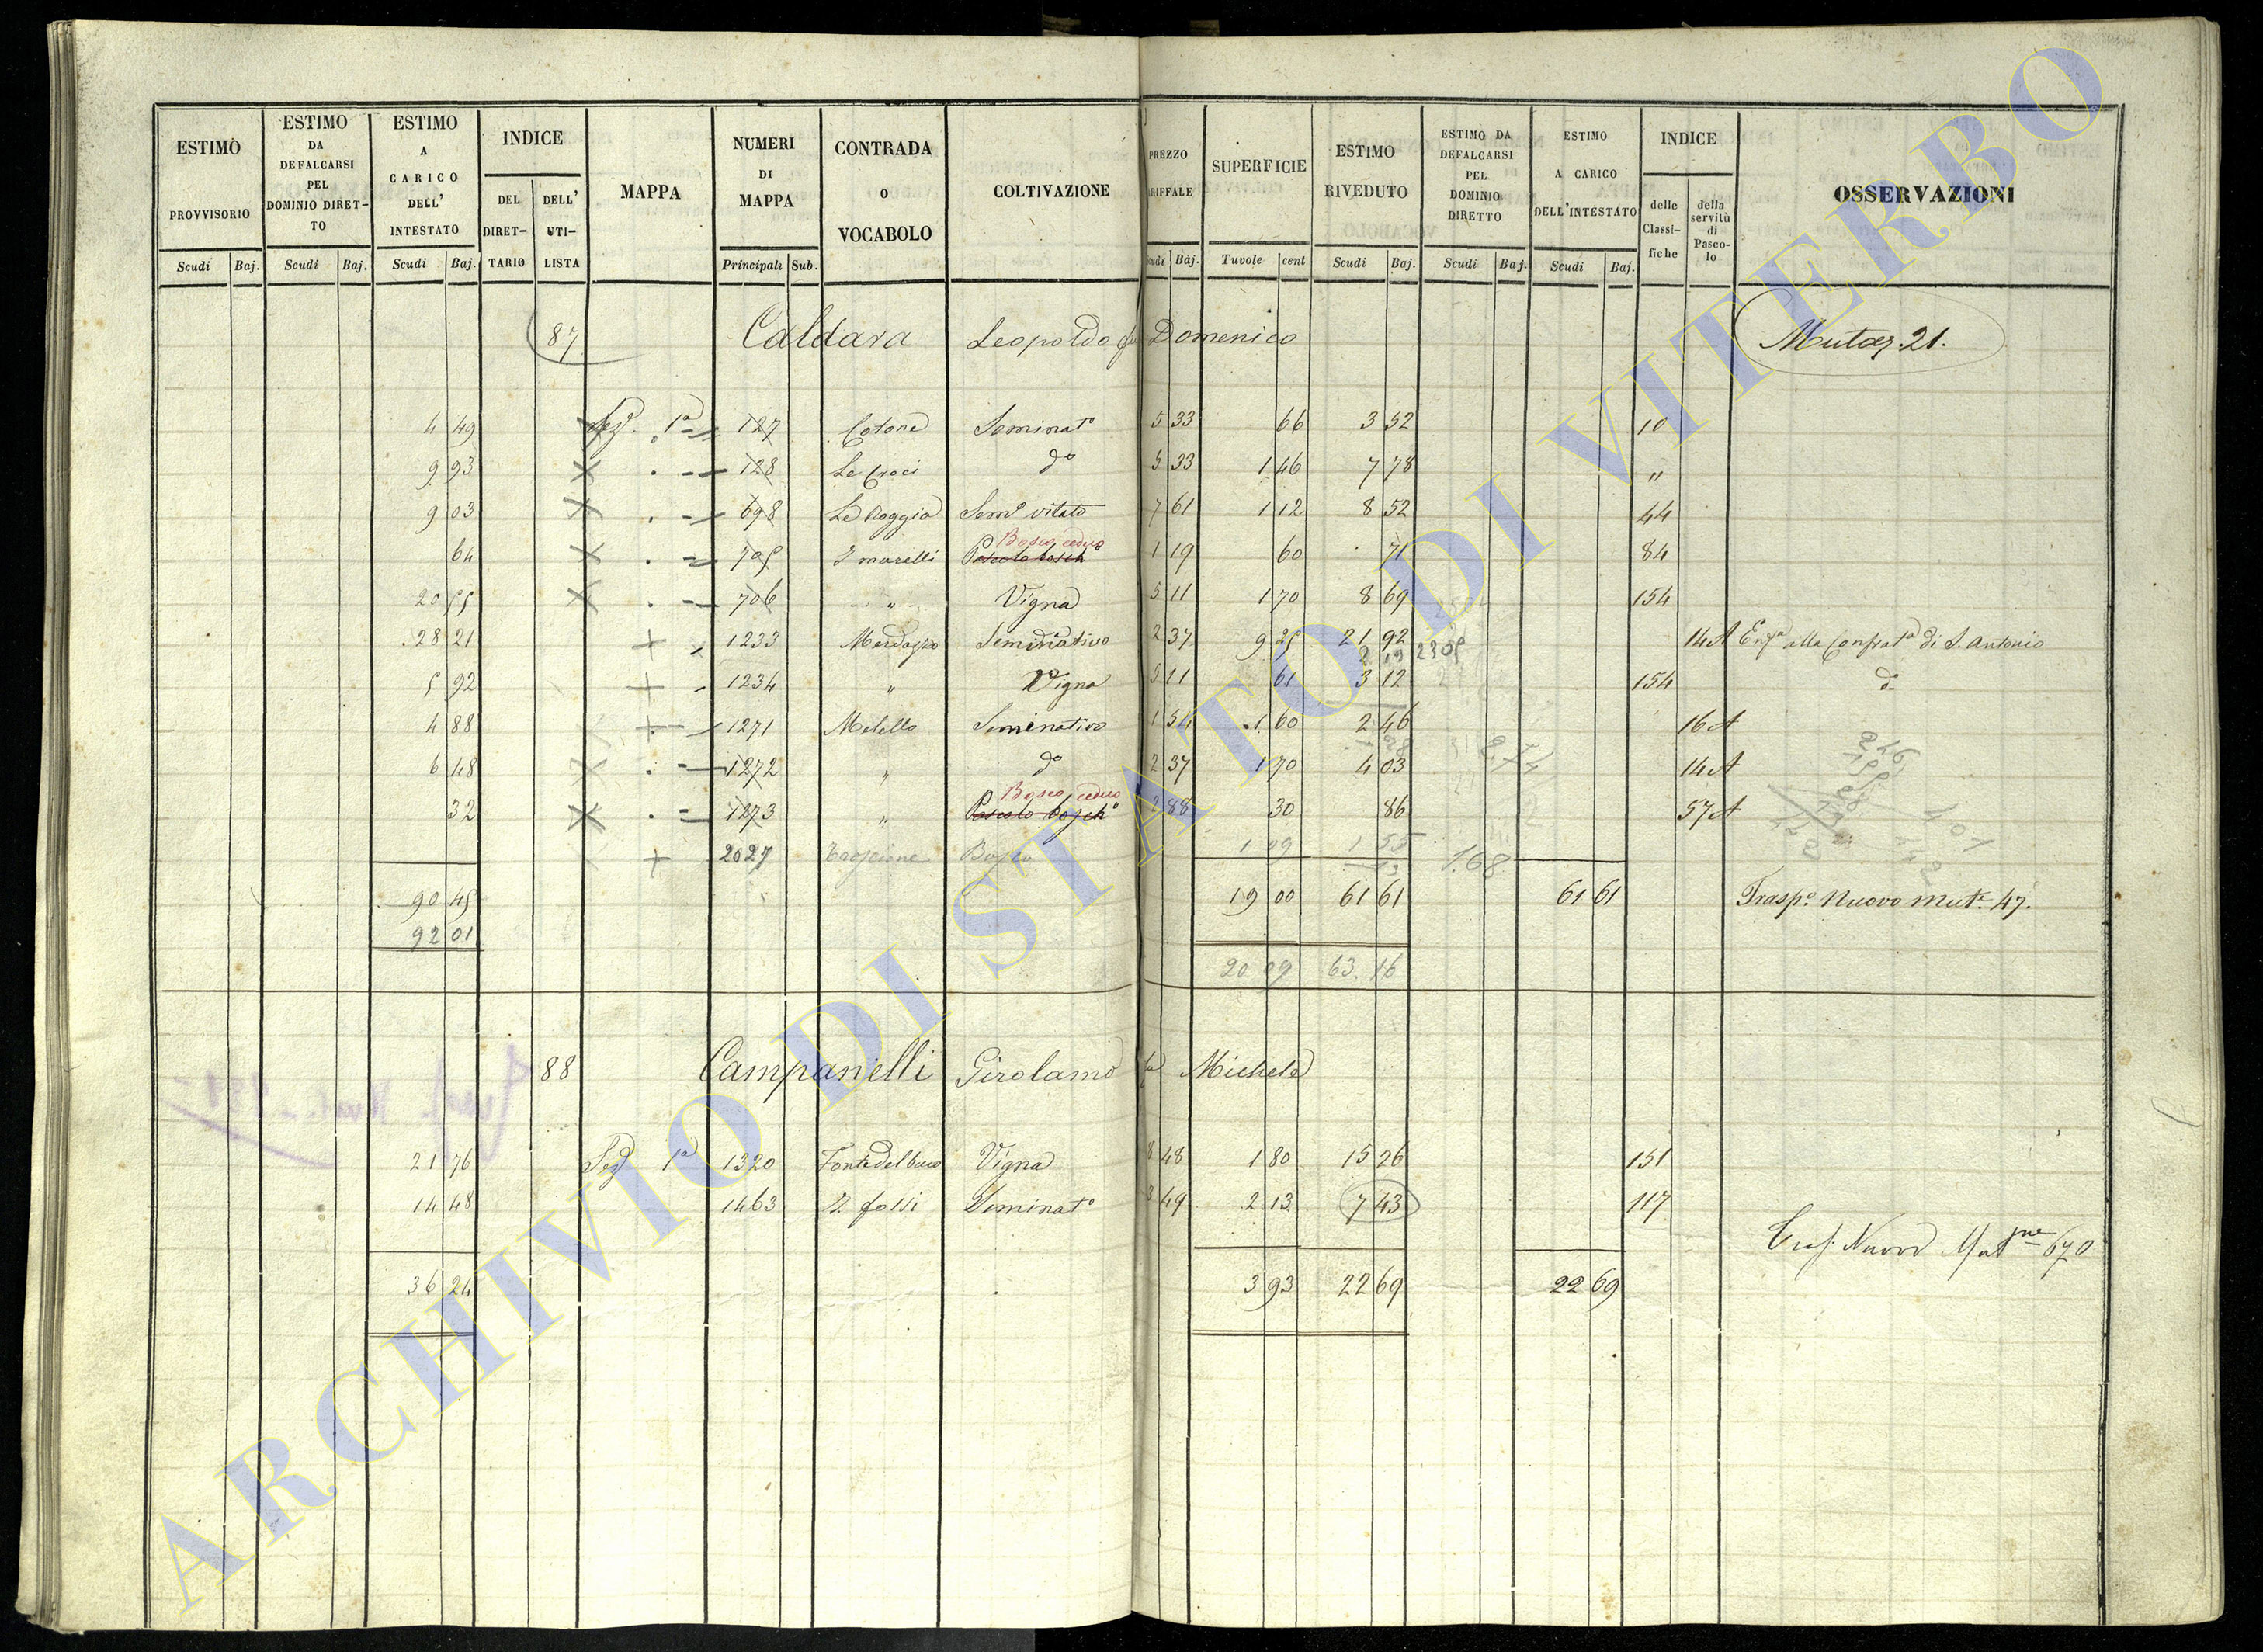 ESTIMO PROVVISORIO
ESTIMO DA DEFALCARSI PEL DOMINIO DIRET-TO
ESTIMO A CARICO DELL' INTESTATO
INDICE
DEL DIRET-TARIO
DELL' UTI-LISTA
MAPPA
NUMERI DI MAPPA
CONTRADA O VOCABOLO
COLTIVAZIONE
PREZZO RIFFALE
SUPERFICIE
ESTIMO RIVEDUTO
ESTIMO DA DEFALCARSI PEL DOMINIO DIRETTO
ESTIMO A CARICO DELL'INTESTATO
INDICE
delle Classi-fiche
della servitù di Pasco-lo
OSSERVAZIONI
Scudi Baj. Scudi Baj. Scudi Baj. Principali Sub. Scudi Baj. Tavole cent Scudi Baj. Scudi Baj. Scudi Baj.
87 Caldara Leopoldo fu Domenico Mutaz. 21.
4 49 Sez. 1ª 127 Cotone Seminatº 5 33 66 3 52 10
9 93 128 Le Croci dº 5 33 1 46 7 78 "
9 03 698 Le Roggia Semº vitato 7 61 1 12 8 52 44
Bosco ceduo
64 705 I murelli Pascolo bosch 1 19 60 71 84
20 55 706 " Vigna 5 11 1 70 8 69 154
28 21 1233 Seminativo 2 37 9 25 21 92 14 A alla Confratª di S. Antonio
2 19 23 05
5 92 1234 " Vigna 5 11 61 3 12 154 d.
4 88 1271 Melello Seminativo 1 54 1 60 2 46 16 A
6 48 1272 " dº 2 37 1 70 4 03 14 A
Bosco ceduo
32 1273 " Pascolo boschº 2 88 30 86 57 A
2027 Bosco 1 09 1 55 1.68
90 45 19 00 61 61 61 61 Traspº Nuovo Mutº 47.
92 01
20 09 63. 16
88 Campanelli Girolamo fu Michele
21 76 Sez 1ª 1320 Fonte del buco Vigna 8 48 1 80 15 26 151
14 48 1463 I fossi Seminatº 3 49 2 13 7 43 117
Trasp. Nuovo 670
36 24 3 93 22 69 22 69
ARCHIVIO DI STATO DI VITERBO